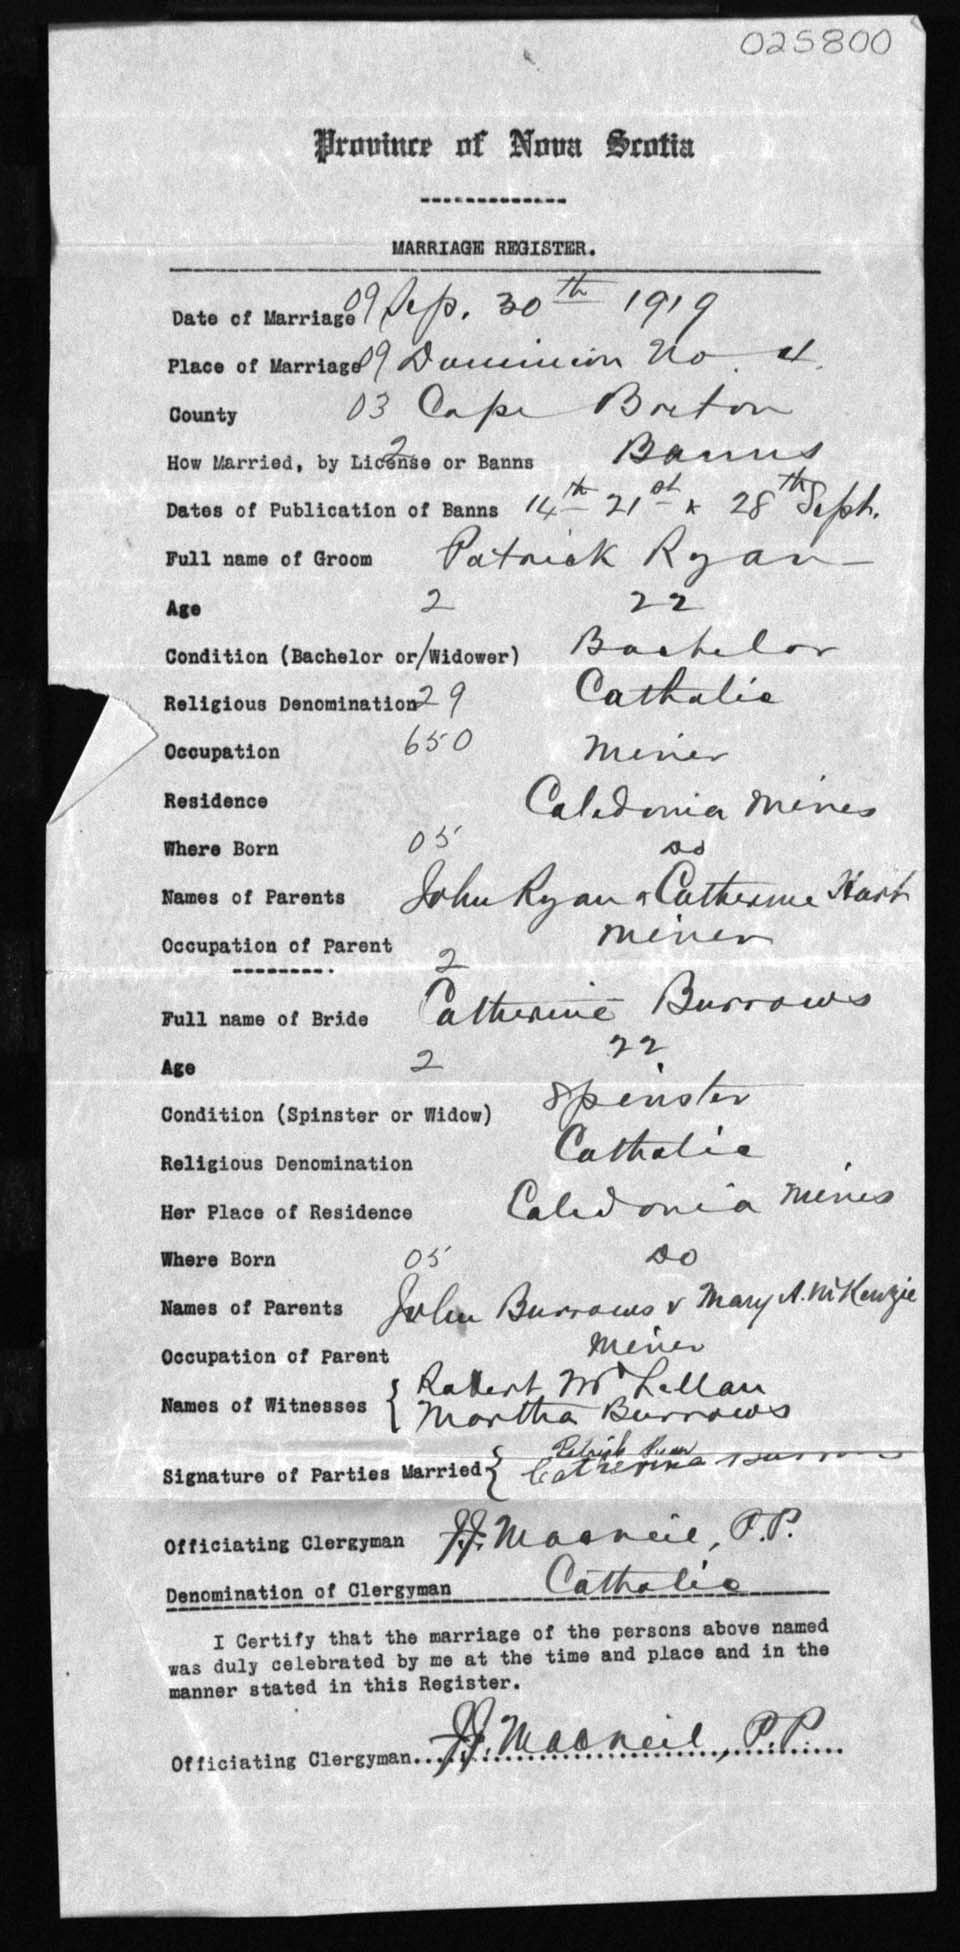 025800
Province of Nova Scotia
MARRIAGE REGISTER.
Date of Marriage 09 Sep. 30th 1919
Place of Marriage 09 Dominion No. 4.
County 03 Cape Breton
How Married, by License or Banns 2 Banns
Dates of Publication of Banns 14th 21st & 28th Sept.
Full name of Groom Patrick Ryan
Age 2 22
Condition (Bachelor or/Widower) Bachelor
Religious Denomination 29 Catholic
Occupation 650 Miner
Residence Caledonia Mines
Where Born 05 do
Names of Parents John Ryan & Catherine Hart
Occupation of Parent Miner
2
Full name of Bride Catherine Burrows
Age 2 22
Condition (Spinster or Widow) Spinster
Religious Denomination Catholic
Her Place of Residence Caledonia Mines
Where Born 05 do
Names of Parents John Burrows & Mary A. McKenzie
Occupation of Parent Miner
Names of Witnesses { Robert McLellan
Martha Burrows
Signature of Parties Married { Patrick Ryan
Catherine Burrows
Officiating Clergyman J.J. Macneil, P.P.
Denomination of Clergyman Catholic
I Certify that the marriage of the persons above named
was duly celebrated by me at the time and place and in the
manner stated in this Register.
Officiating Clergyman.... J.J. Macneil, P.P.